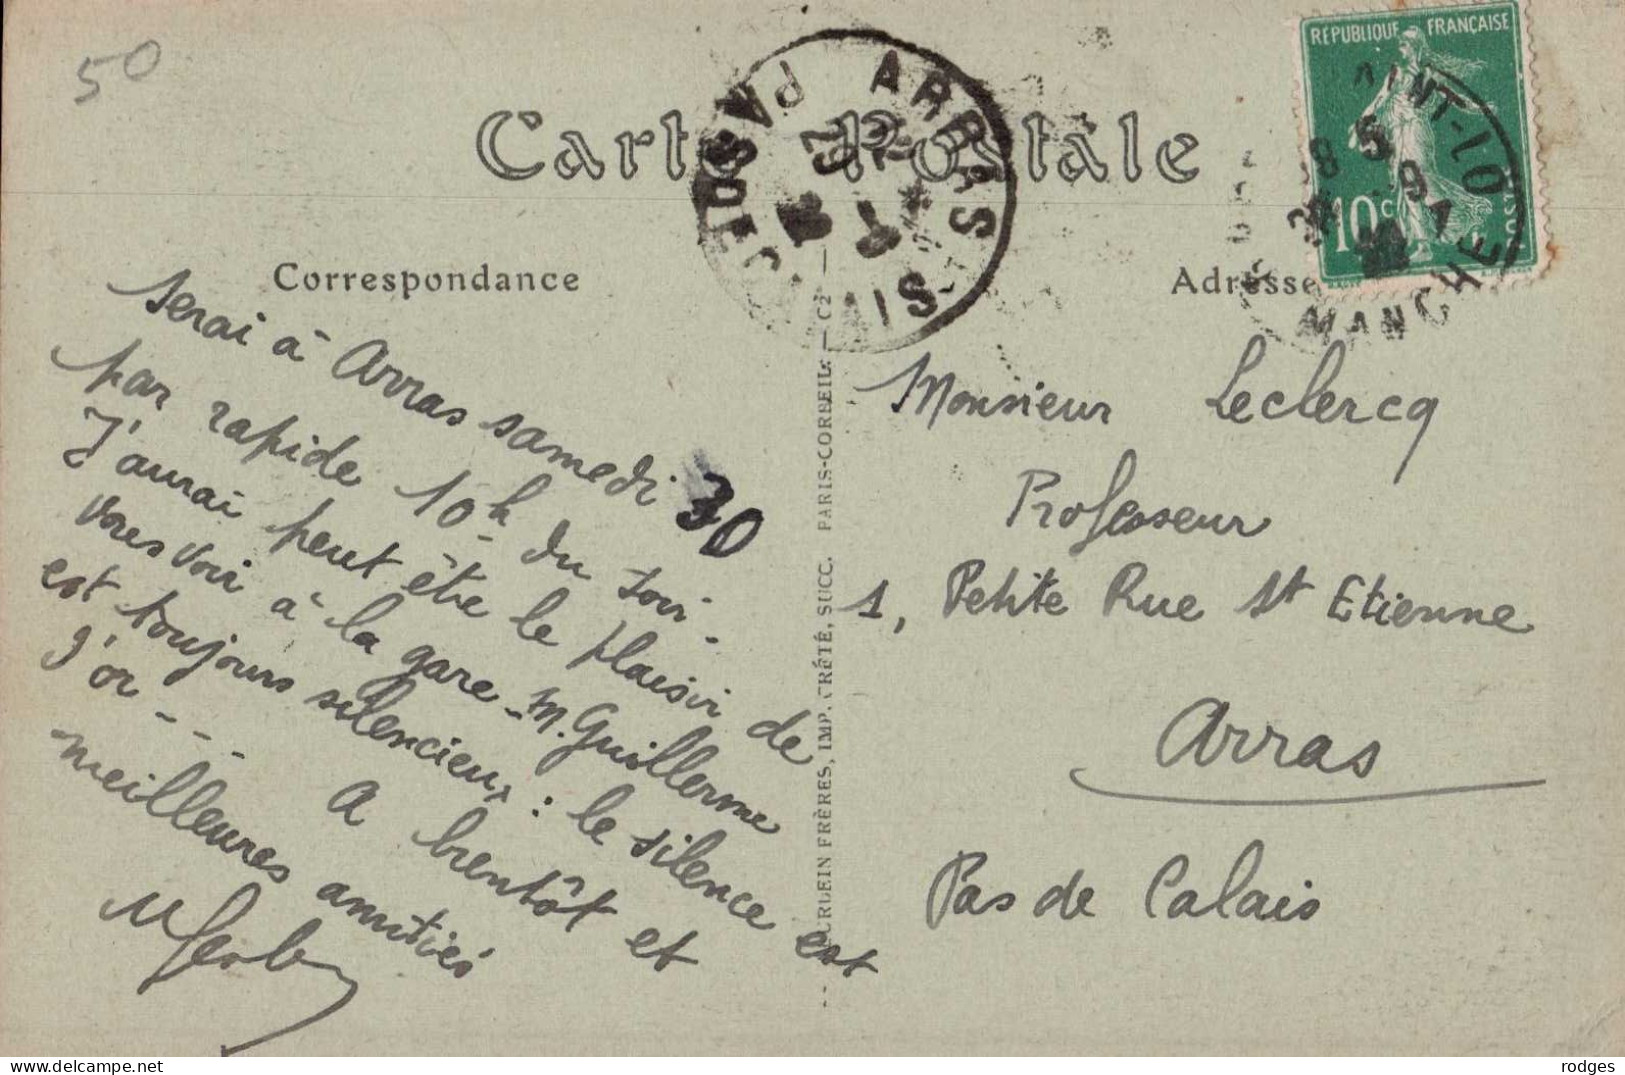 50
Carte Postale
Correspondance
Adresse
RÉPUBLIQUE FRANÇAISE
10c
ARRAS
PAS DE CALAIS
SAINT-LO
MANCHE
serai à Arras samedi 30
par rapide 10h du soir.
J'aurai peut être le plaisir de
vous voir à la gare - M. Guillerme
est toujours silencieux : le silence est
d'or - - - A bientôt et
meilleures amitiés
BOURDEIN FRÈRES, IMP. CRÉTÉ, SUCC. PARIS-CORBEIL. — C2
Monsieur Leclercq
Professeur
1, Petite Rue St Etienne
Arras
Pas de Calais
rodges